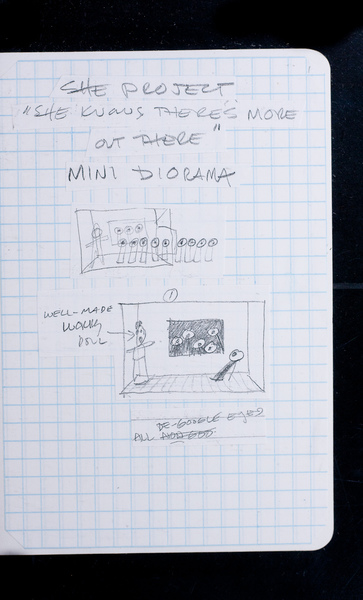 SHE PROJECT
"SHE KNOWS THERE'S MORE
OUT THERE"
MINI DIORAMA
1
WELL-MADE
WORK
DOLL
DE-GOOGLE EYED
ALL